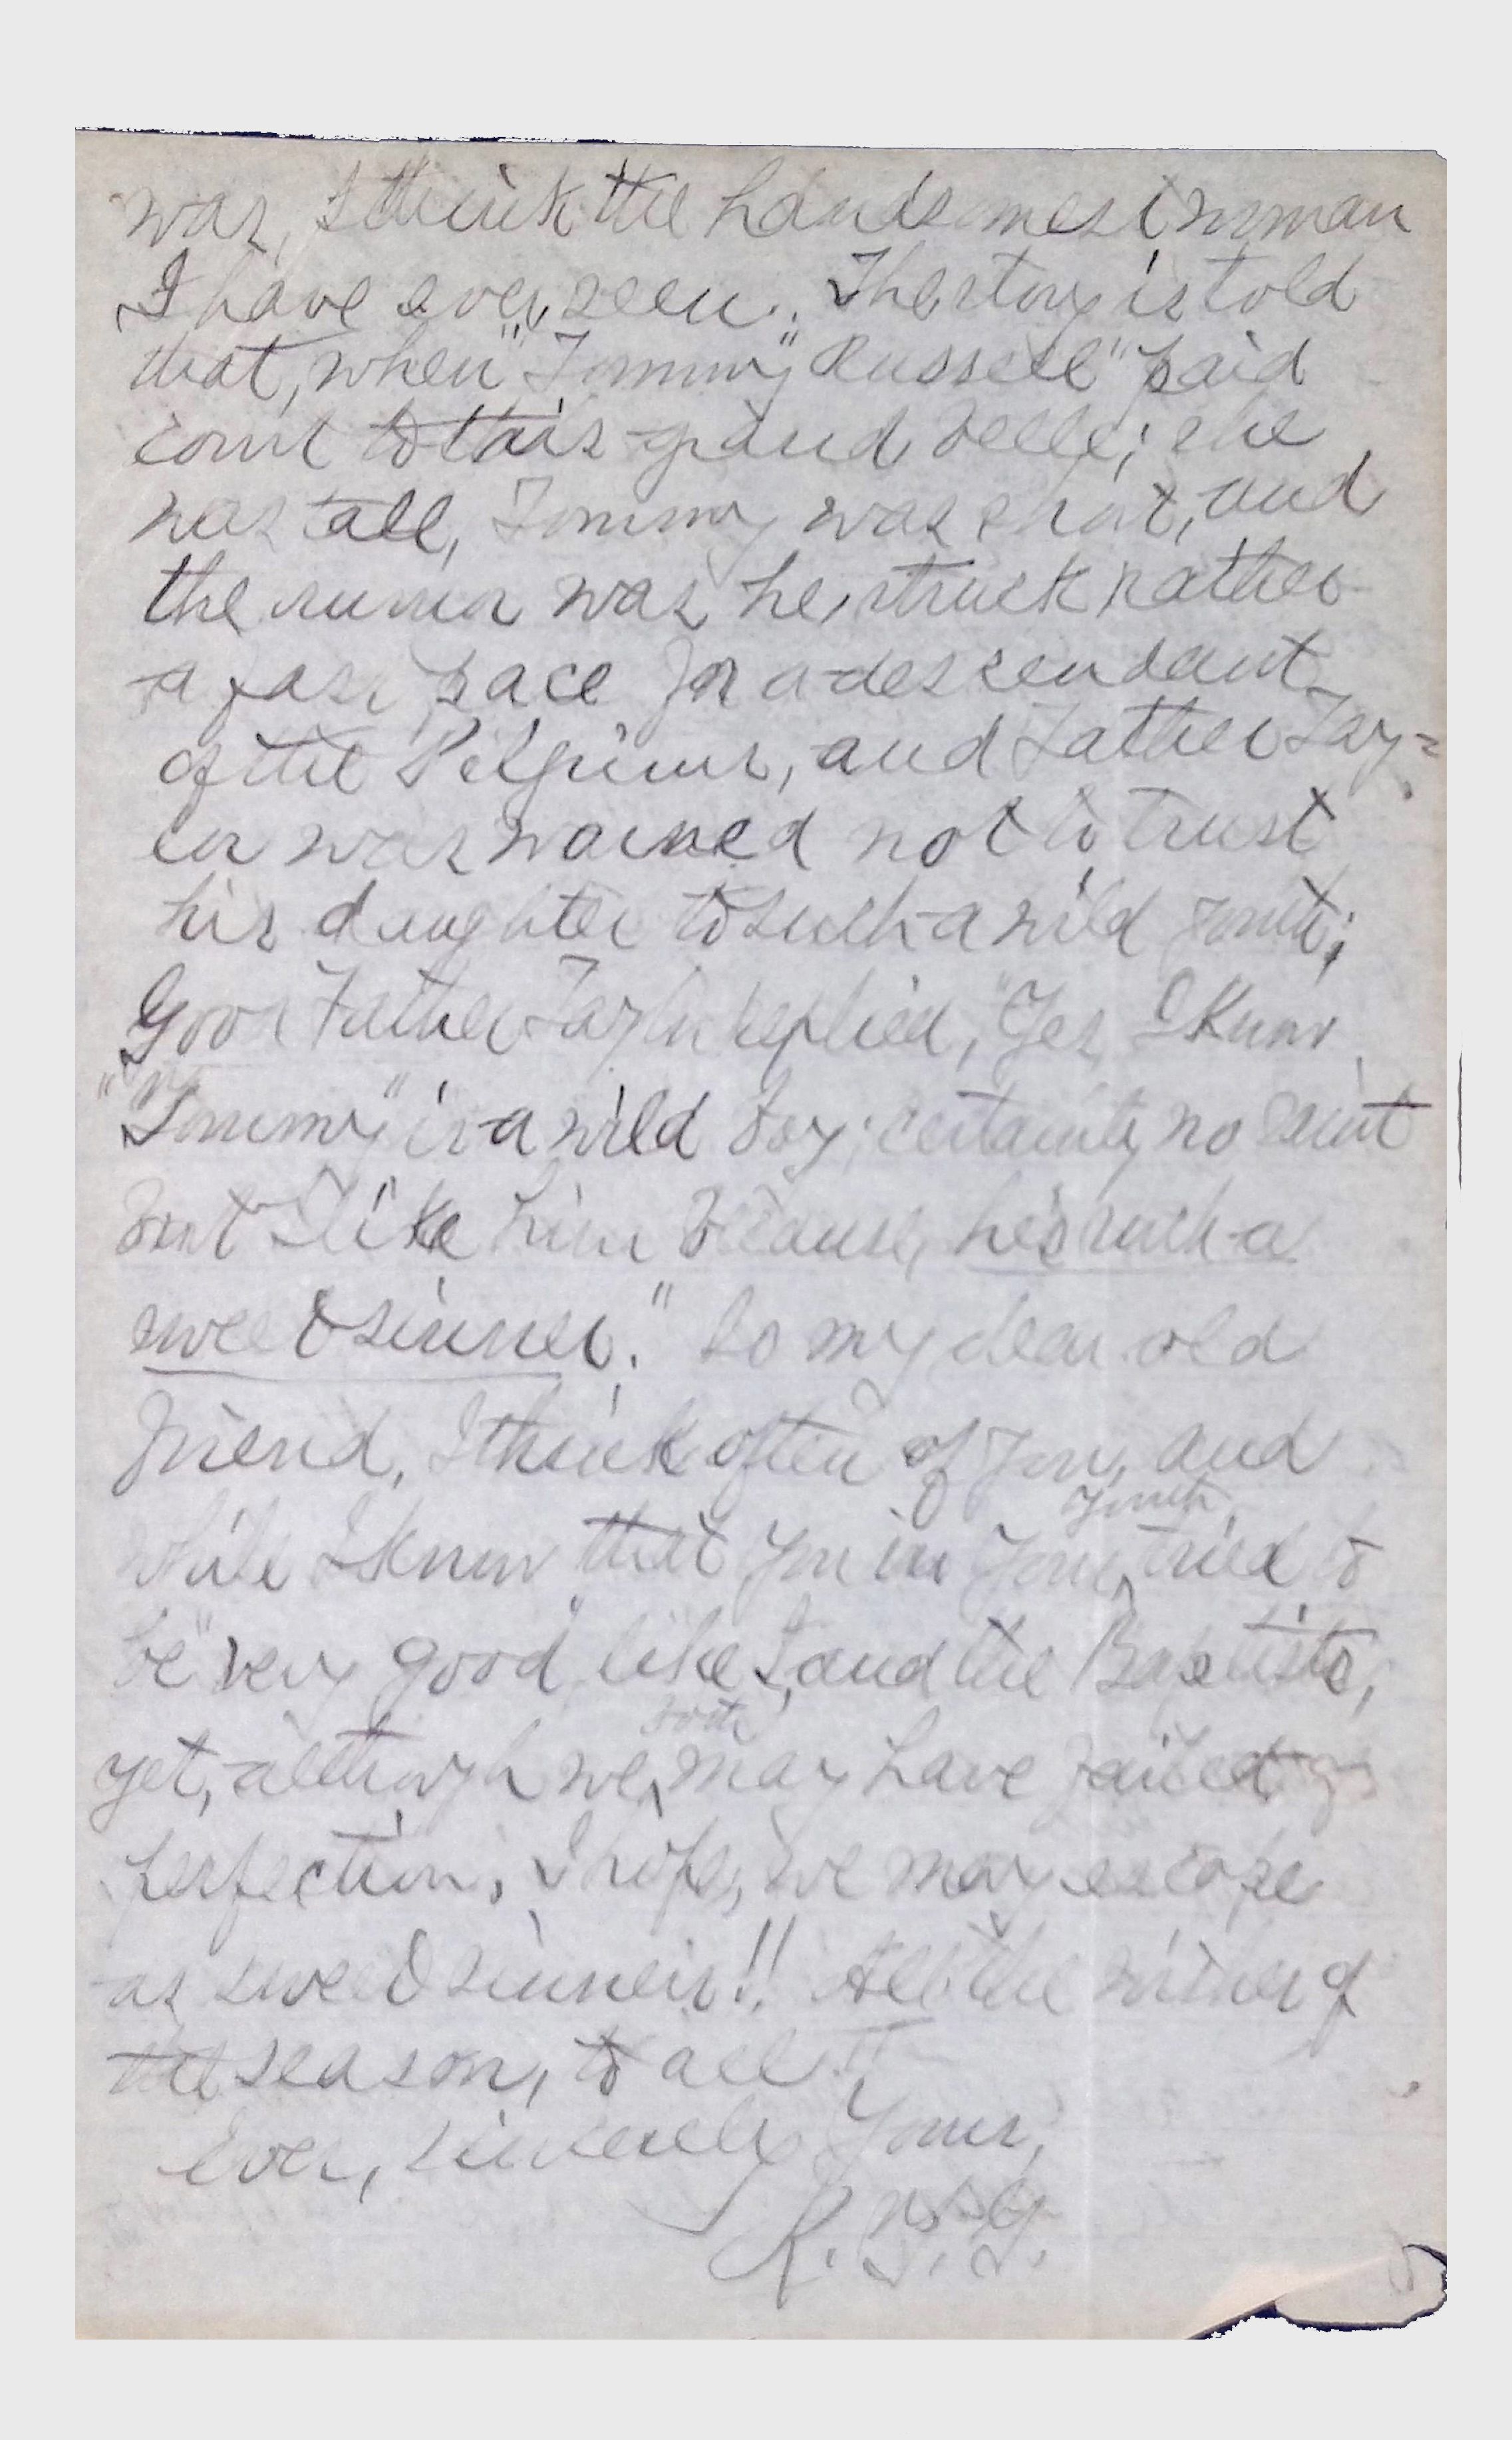 was, I think the handsomest woman
I have ever seen. The story is told
that, when "Tommy" Russell" paid
court to this grand belle; she
was tall, Tommy was short, and
the rumor was he struck rather
a fast pace for a descendant
of the Pilgrims, and Father Tay=
lor was warned not to trust
his daughter to such a wild youth;
Good Father Taylor replied, "Yes I know
"Tommy" is a wild boy; certainly no saint
but I like him because, he's such a
sweet sinner." So my dear old
friend, I think often of you, and
while I know that you in your youth, tried to
be "very good, like I, and the Baptists,
yet, although we both may have failed
perfection, I hope, we may escape
as sweet sinners!! All the wishes of
the season, to all
Ever, sincerely Yours,